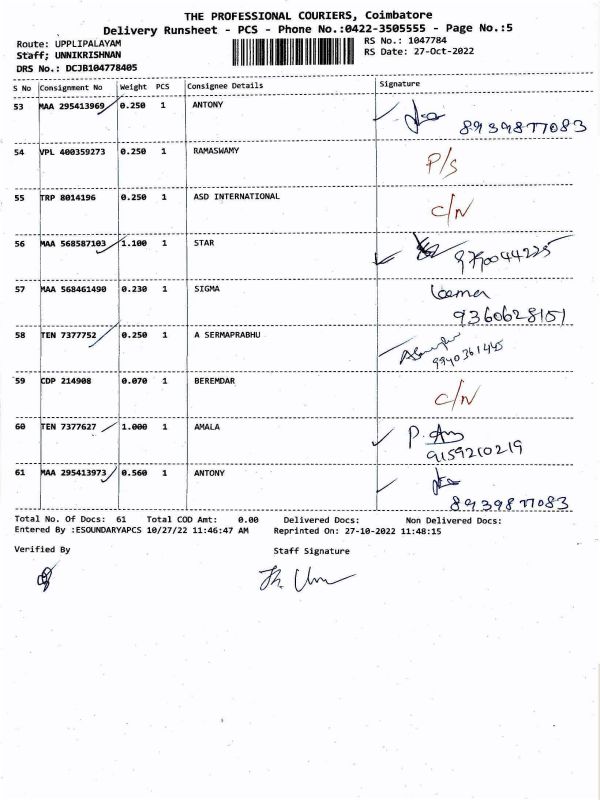 THE PROFESSIONAL COURIERS, Coimbatore
Delivery Runsheet - PCS - Phone No.:0422-3505555 - Page No.:5
Route: UPPLIPALAYAM
RS No.: 1047784
Staff; UNNIKRISHNAN
RS Date: 27-Oct-2022
DRS No.: DCJB104778405
S No Consignment No Weight PCS Consignee Details Signature
53 MAA 295413969 0.250 1 ANTONY
8939877083
54 VPL 400359273 0.250 1 RAMASWAMY P/S
55 TRP 8014196 0.250 1 ASD INTERNATIONAL C/N
56 MAA 568587103 1.100 1 STAR
9790044225
57 MAA 568461490 0.230 1 SIGMA
9360628151
58 TEN 7377752 0.250 1 A SERMAPRABHU
9940361445
59 CDP 214908 0.070 1 BEREMDAR C/N
60 TEN 7377627 1.000 1 AMALA P.
9159210219
61 MAA 295413973 0.560 1 ANTONY
8939877083
Total No. Of Docs: 61 Total COD Amt: 0.00 Delivered Docs: Non Delivered Docs:
Entered By :ESOUNDARYAPCS 10/27/22 11:46:47 AM Reprinted On: 27-10-2022 11:48:15
Verified By Staff Signature